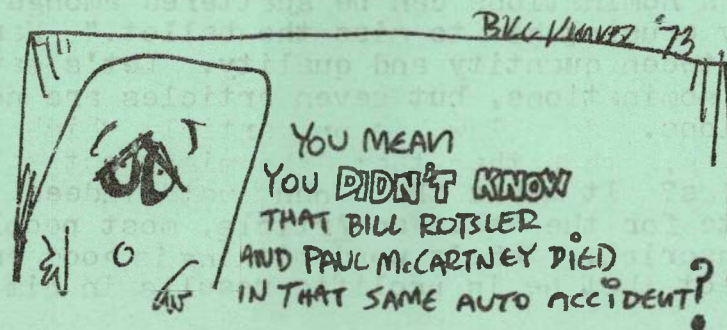 BILL KUNKEL '73
YOU MEAN
YOU DIDN'T KNOW
THAT BILL ROTSLER
AND PAUL McCARTNEY DIED
IN THAT SAME AUTO ACCIDENT?